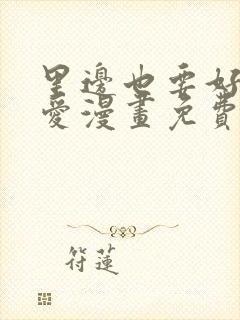 里邊也要好
愛漫畫免費
符蓮